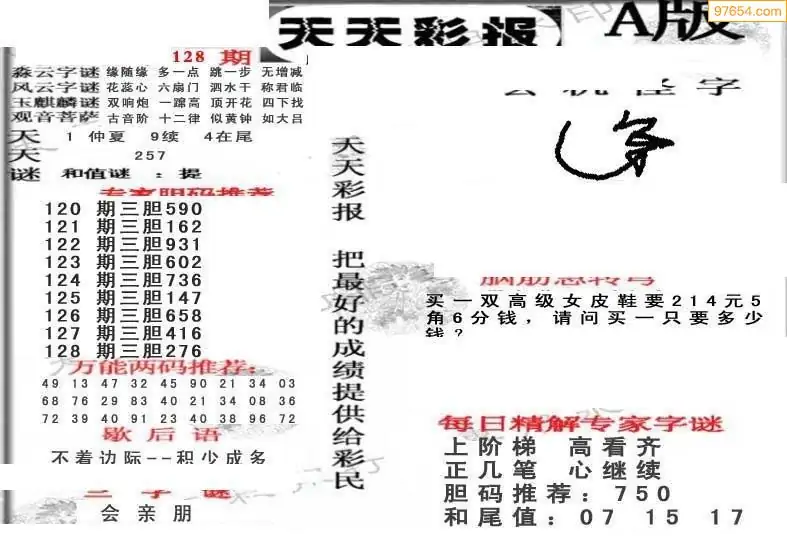 97654.com
天天彩报
A版
128 期
淼云字谜 缘随缘 多一点 跳一步 无增减
风云字谜 花蕊心 六扇门 泗水干 称君临
玉麒麟谜 双响炮 一蹿高 顶开花 四下找
观音菩萨 古音阶 十二律 似黄钟 如大吕
天 1 仲夏 9续 4在尾
天 257
谜 和值谜 : 提
专家胆码推荐
120 期三胆590
121 期三胆162
122 期三胆931
123 期三胆602
124 期三胆736
125 期三胆147
126 期三胆658
127 期三胆416
128 期三胆276
万能两码推荐:
49 13 47 32 45 90 21 34 03
68 76 29 83 40 21 34 08 36
72 39 40 91 23 40 38 96 72
歇后语
不着边际--积少成多
三字谜
会亲朋
天天彩报 把最好的成绩提供给彩民
玄机怪字
脑筋急转弯
买一双高级女皮鞋要214元5
角6分钱，请问买一只要多少
钱?
每日精解专家字谜
上阶梯 高看齐
正几笔 心继续
胆码推荐: 750
和尾值: 07 15 17